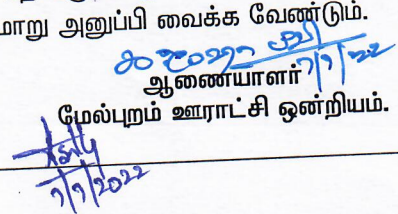 மாறு அனுப்பி வைக்க வேண்டும்.
7/7/22
ஆணையாளர்
மேல்புறம் ஊராட்சி ஒன்றியம்.
7/7/2022